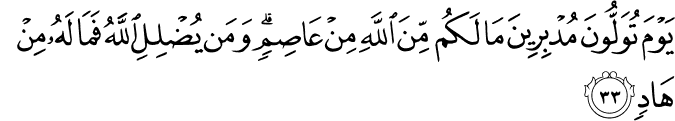 يَوْمَ تُوَلُّونَ مُدْبِرِينَ مَا لَكُم مِّنَ ٱللَّهِ مِنْ عَاصِمٍۢ ۗ وَمَن يُضْلِلِ ٱللَّهُ فَمَا لَهُۥ مِنْ
هَادٍۢ ٣٣